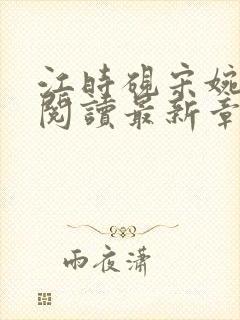 江時硯宋婉
閱讀最新章
雨夜瀟